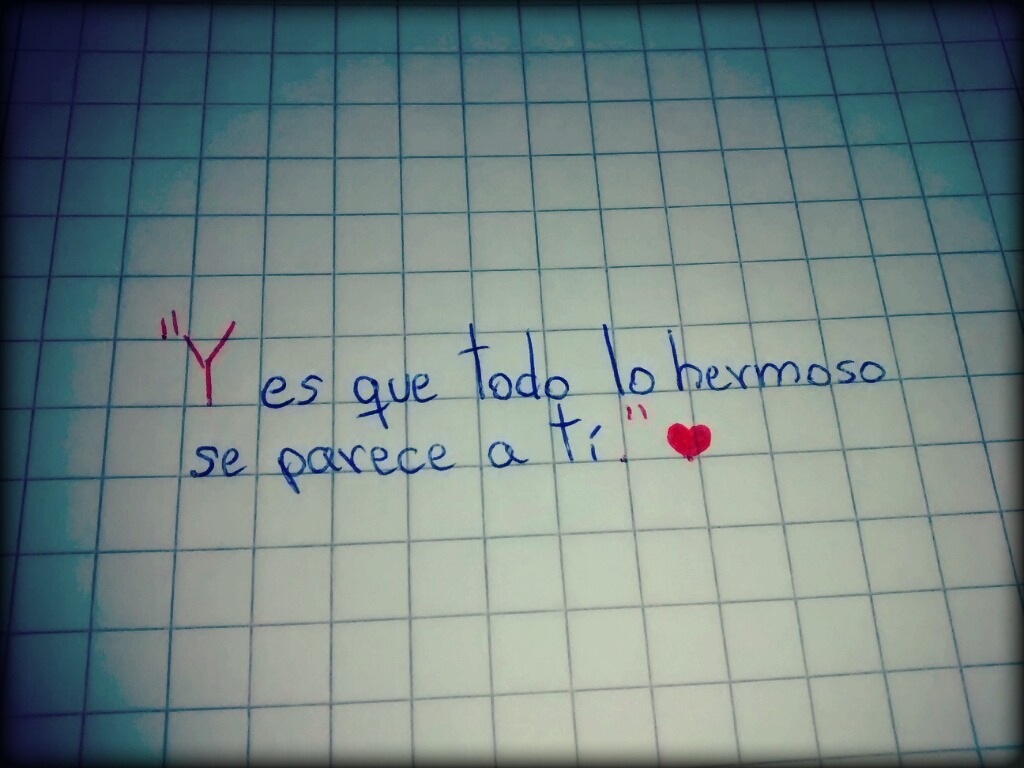 "Y es que todo lo hermoso
se parece a tí." ♥